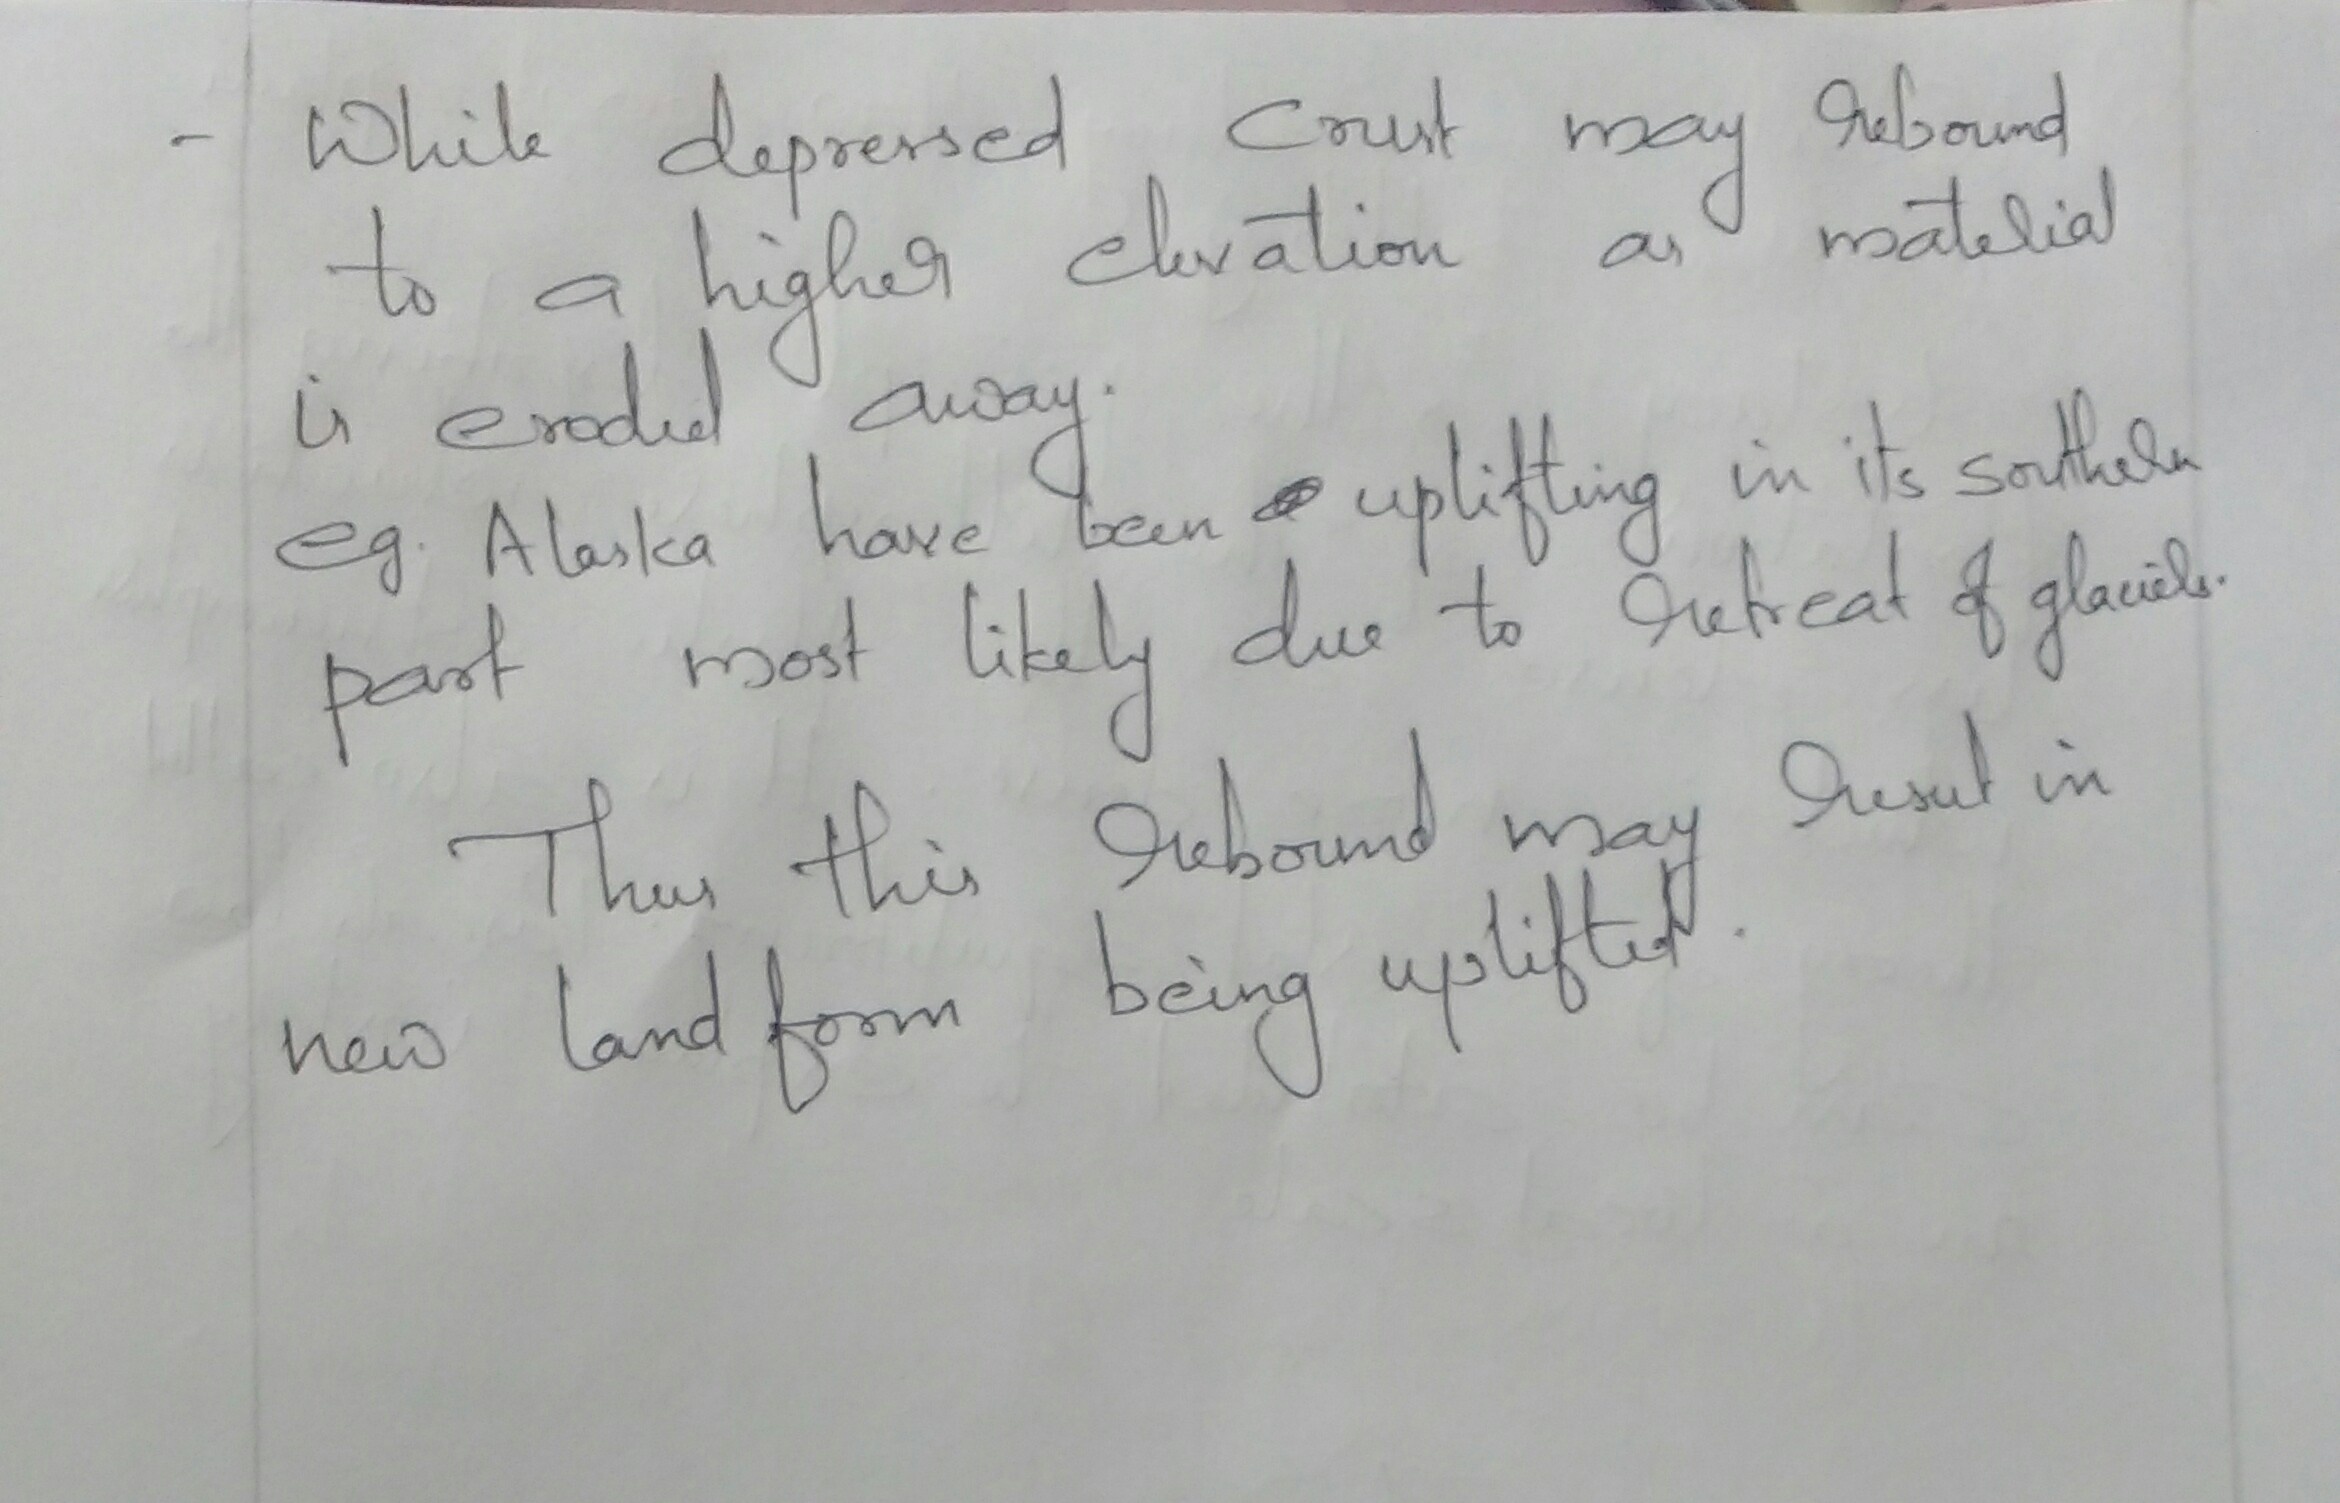 - While depressed crust may rebound
to a higher elevation as material
is eroded away.
eg. Alaska have been uplifting in its southern
part most likely due to retreat of glaciers.
Thus this rebound may result in
new land form being uplifted.